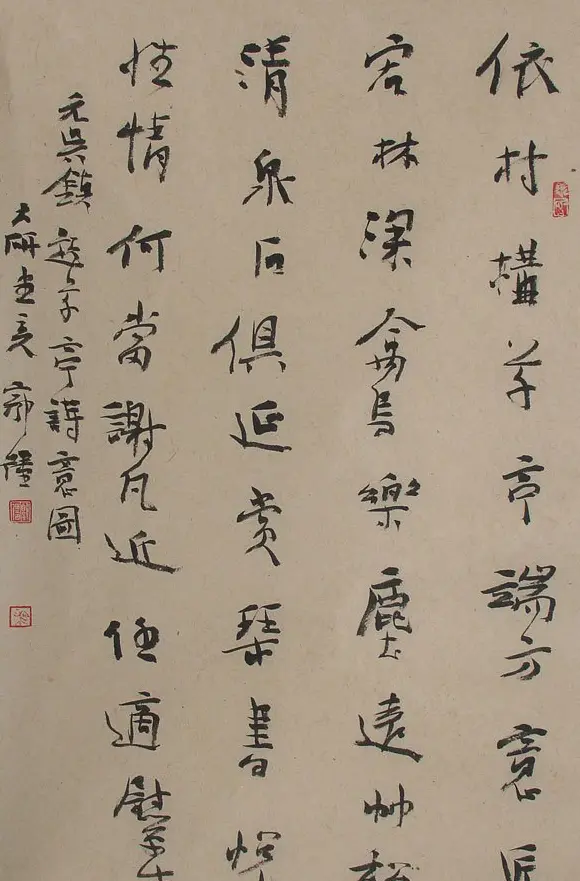 依村構草亭端方意匠
宏林深禽鳥樂塵遠竹松
清泉石俱延賞琴書悅
性情何當謝凡近任適慰平生
元吳鎮草亭詩意圖
大研